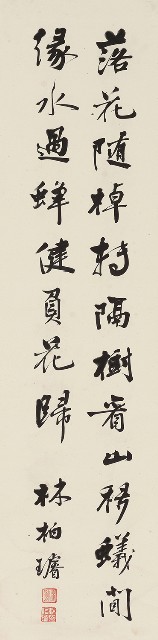 落花随棹轉隔樹看山移蟻閒
緣水過蜂健負花歸
林柏璿